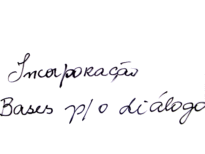 Incorporação
Bases p/o diálogo